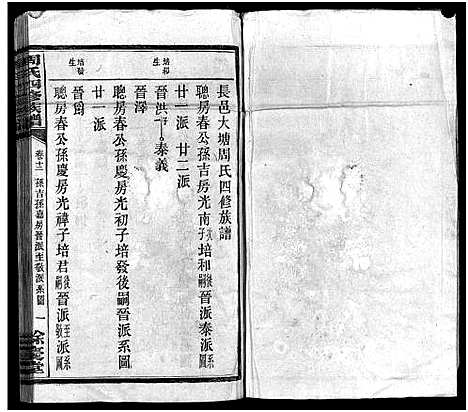 長邑大塘周氏四修族譜
聰房春公孫吉房光南子培和後嗣晉派泰派系圖
廿一派 廿二派
培和生 晉洪 泰義
晉澤
聰房春公孫慶房光初子培發後嗣晉派系圖
廿一派
培發生 晉
聰房春公孫慶房光禕子培君後嗣晉派至敬派系
周氏四修族譜
卷十二 孫吉孫嘉房晉派至敬派系圖 一
餘慶堂